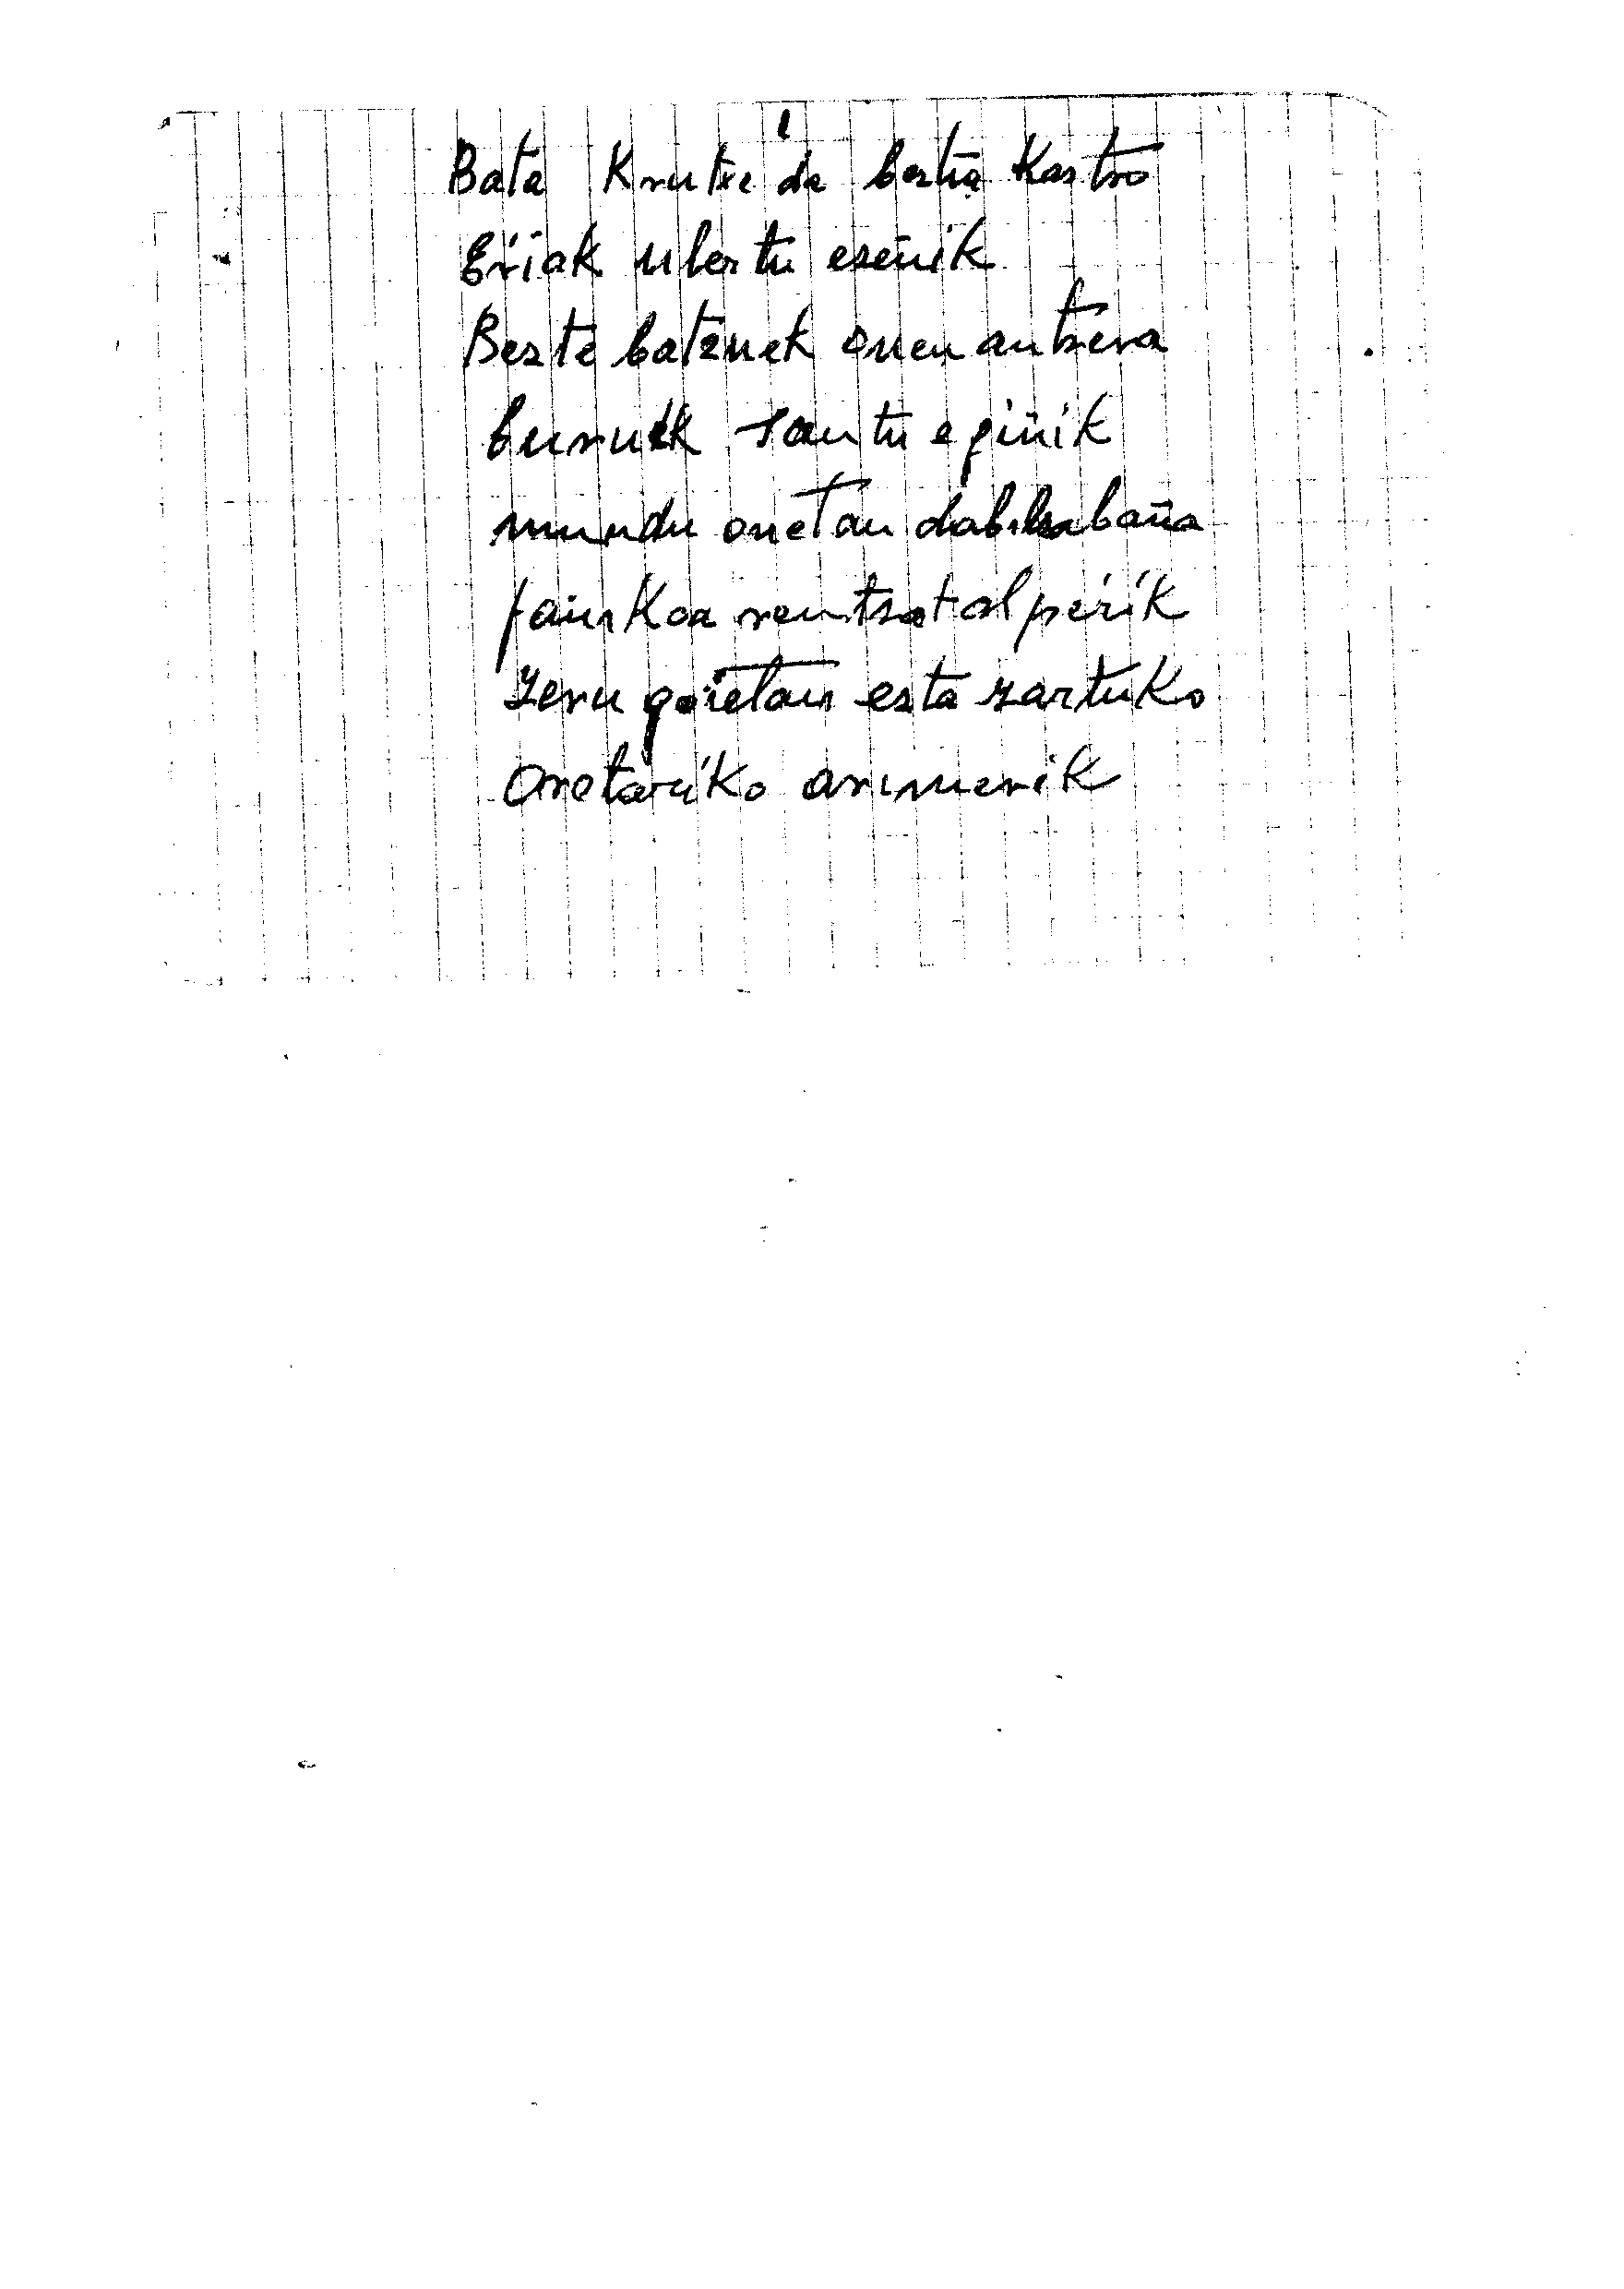 Bata Krutxe da bestia Kastro
Eŕiak ulertu eseŕik
Beste batzuek onen antzera
buruek santu egiñik
mundu onetan dabiltza baña
jainkoa rentzat alpeŕik
zeru goietan ezta zartuko
Orotariko arimerik